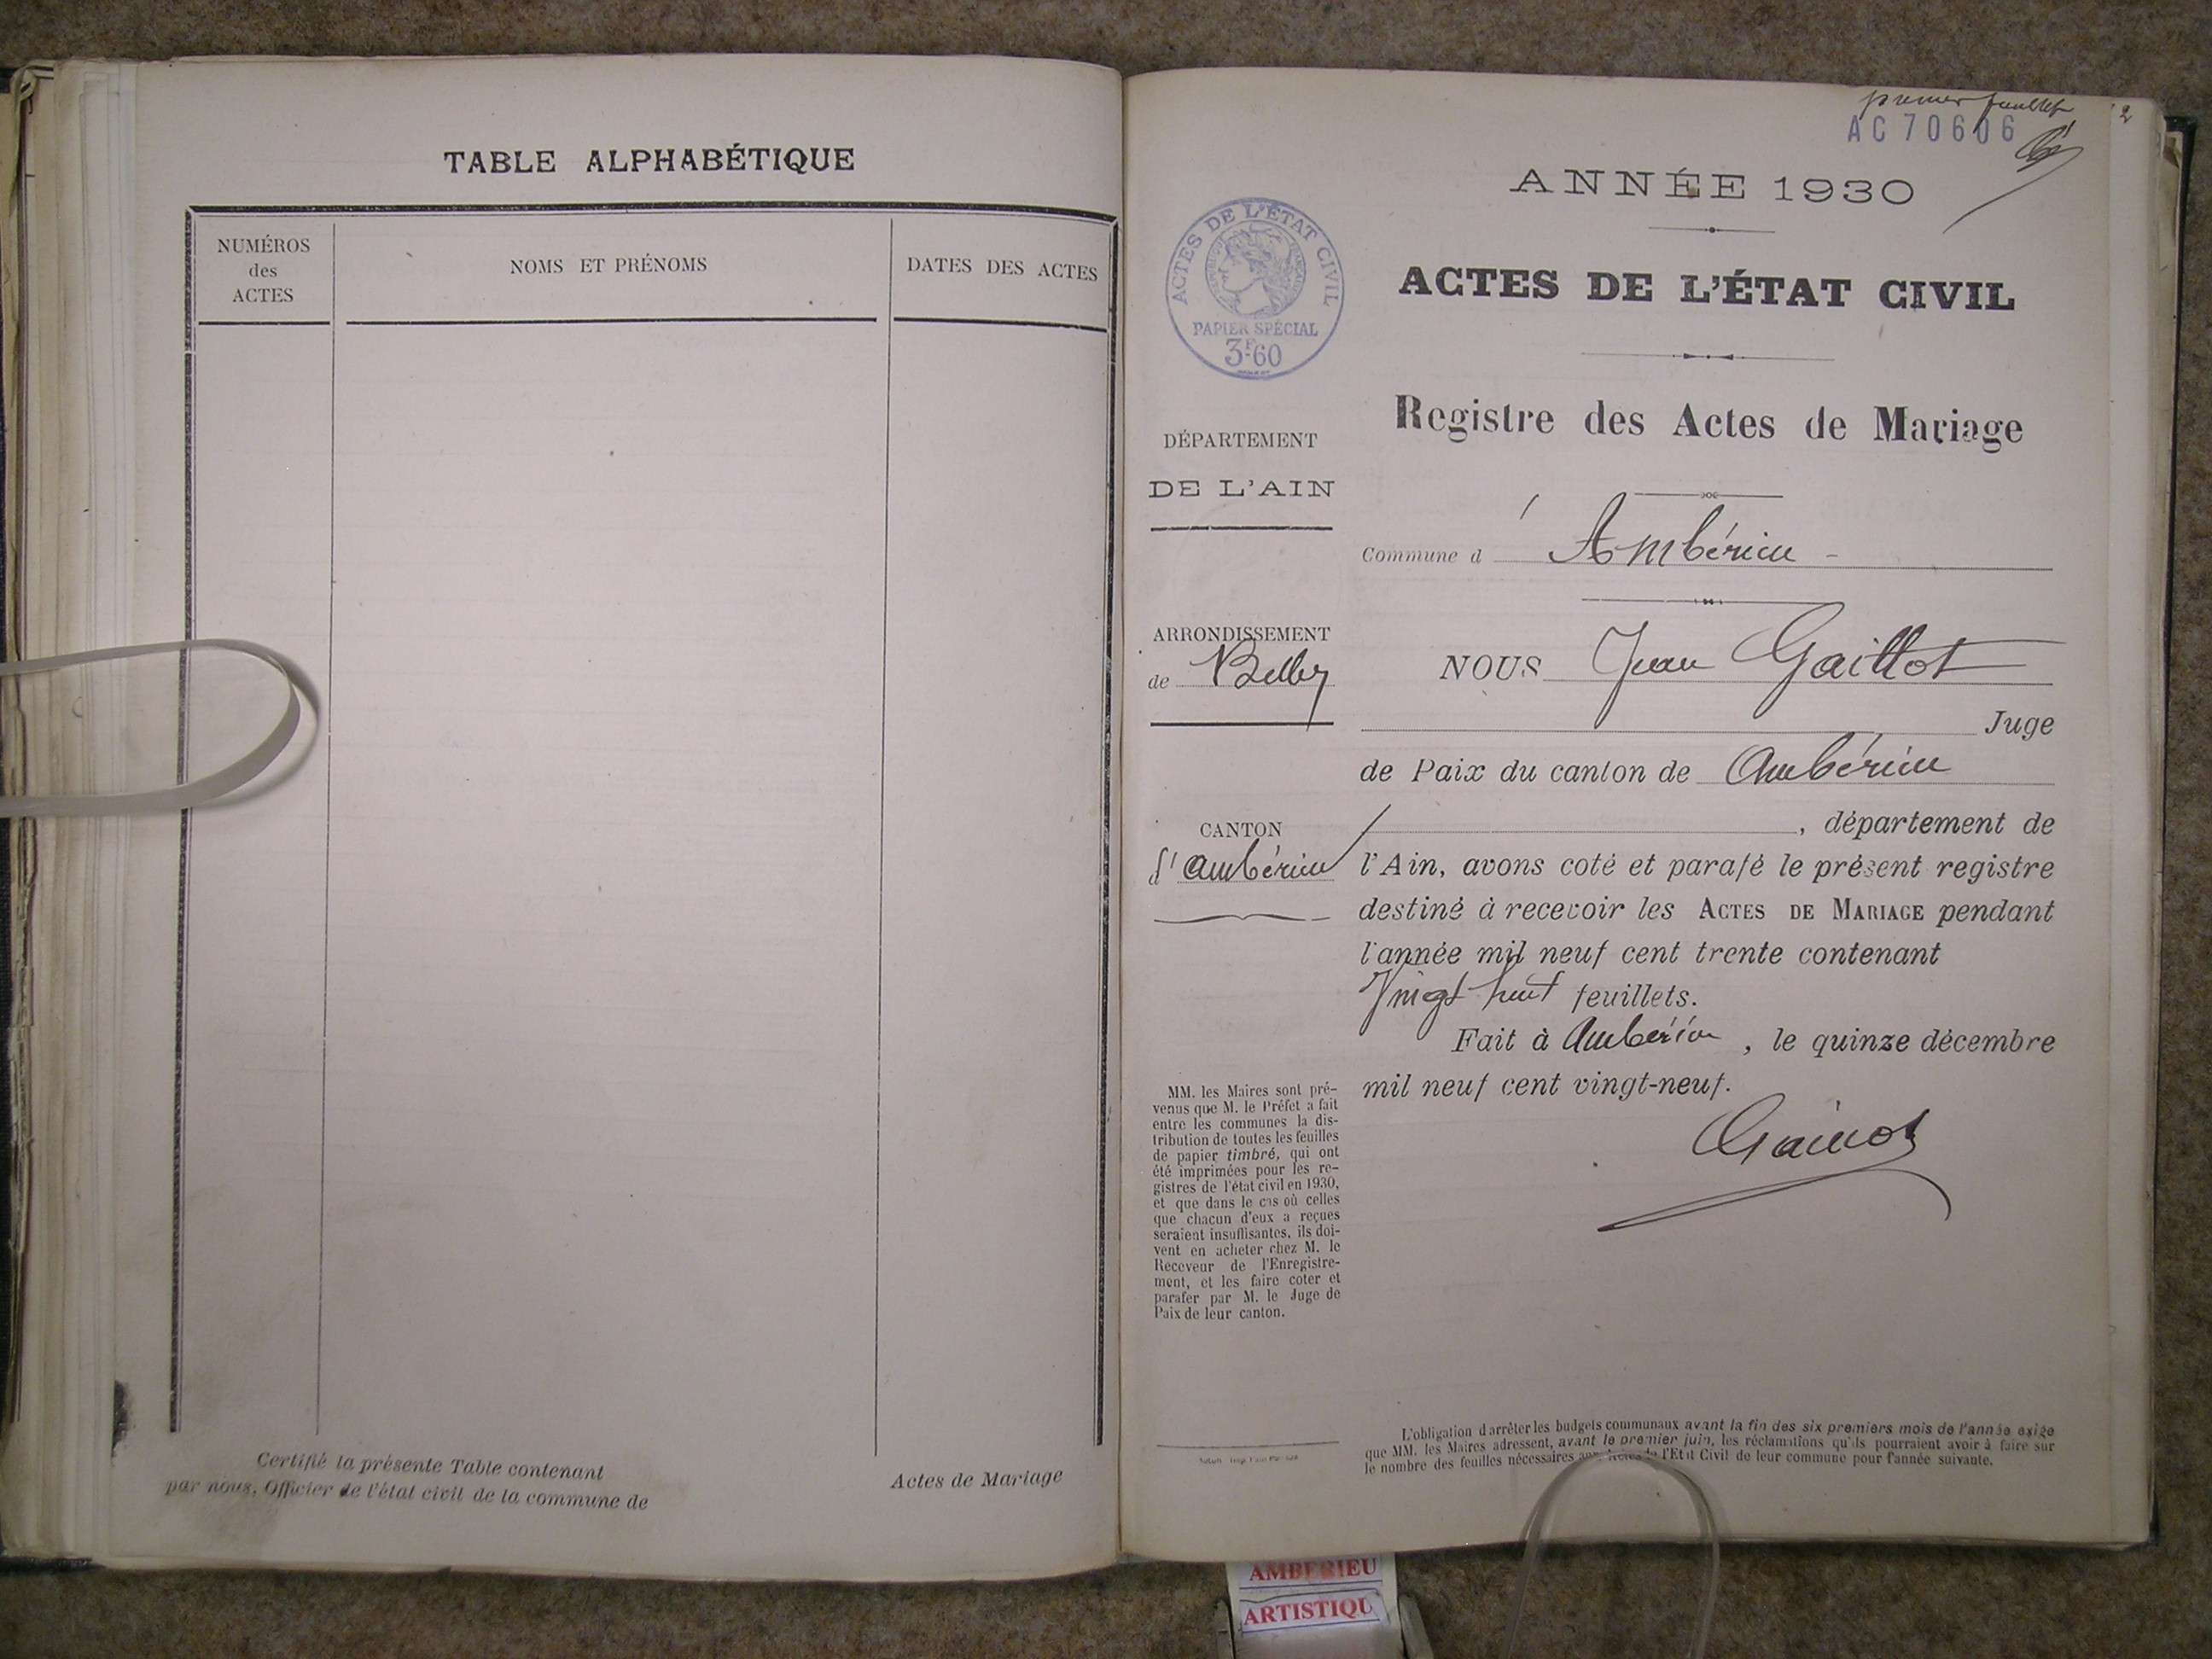 TABLE ALPHABÉTIQUE
NUMÉROS
des
ACTES
NOMS ET PRÉNOMS
DATES DES ACTES
Certifié la présente Table contenant
Actes de Mariage
par nous, Officier de l'état civil de la commune de
premier feuillet
2
AC 70606
ANNÉE 1930
ACTES DE L'ÉTAT CIVIL
PAPIER SPÉCIAL
3F60
ACTES DE L'ÉTAT CIVIL
Registre des Actes de Mariage
DÉPARTEMENT
DE L'AIN
Commune d' Ambérieu -
ARRONDISSEMENT
de Belley
CANTON
d'Ambérieu
NOUS Jean Gaillot
Juge
de Paix du canton de Ambérieu
, département de
l'Ain, avons coté et parafé le présent registre
destiné à recevoir les ACTES DE MARIAGE pendant
l'année mil neuf cent trente contenant
Vingt huit feuillets.
Fait à Ambérieu, le quinze décembre
mil neuf cent vingt-neuf.
MM. les Maires sont pré-
venus que M. le Préfet a fait
entre les communes la dis-
tribution de toutes les feuilles
de papier timbré, qui ont
été imprimées pour les re-
gistres de l'état civil en 1930,
et que dans le cas où celles
que chacun d'eux a reçues
seraient insuffisantes, ils doi-
vent en acheter chez M. le
Receveur de l'Enregistre-
ment, et les faire coter et
parafer par M. le Juge de
Paix de leur canton.
L'obligation d'arrêter les budgets communaux avant la fin des six premiers mois de l'année exige
que MM. les Maires adressent, avant le premier juin, les réclamations qu'ils pourraient avoir à faire sur
le nombre des feuilles nécessaires de l'Etat Civil de leur commune pour l'année suivante.
AMBERIEU
ARTISTIQU